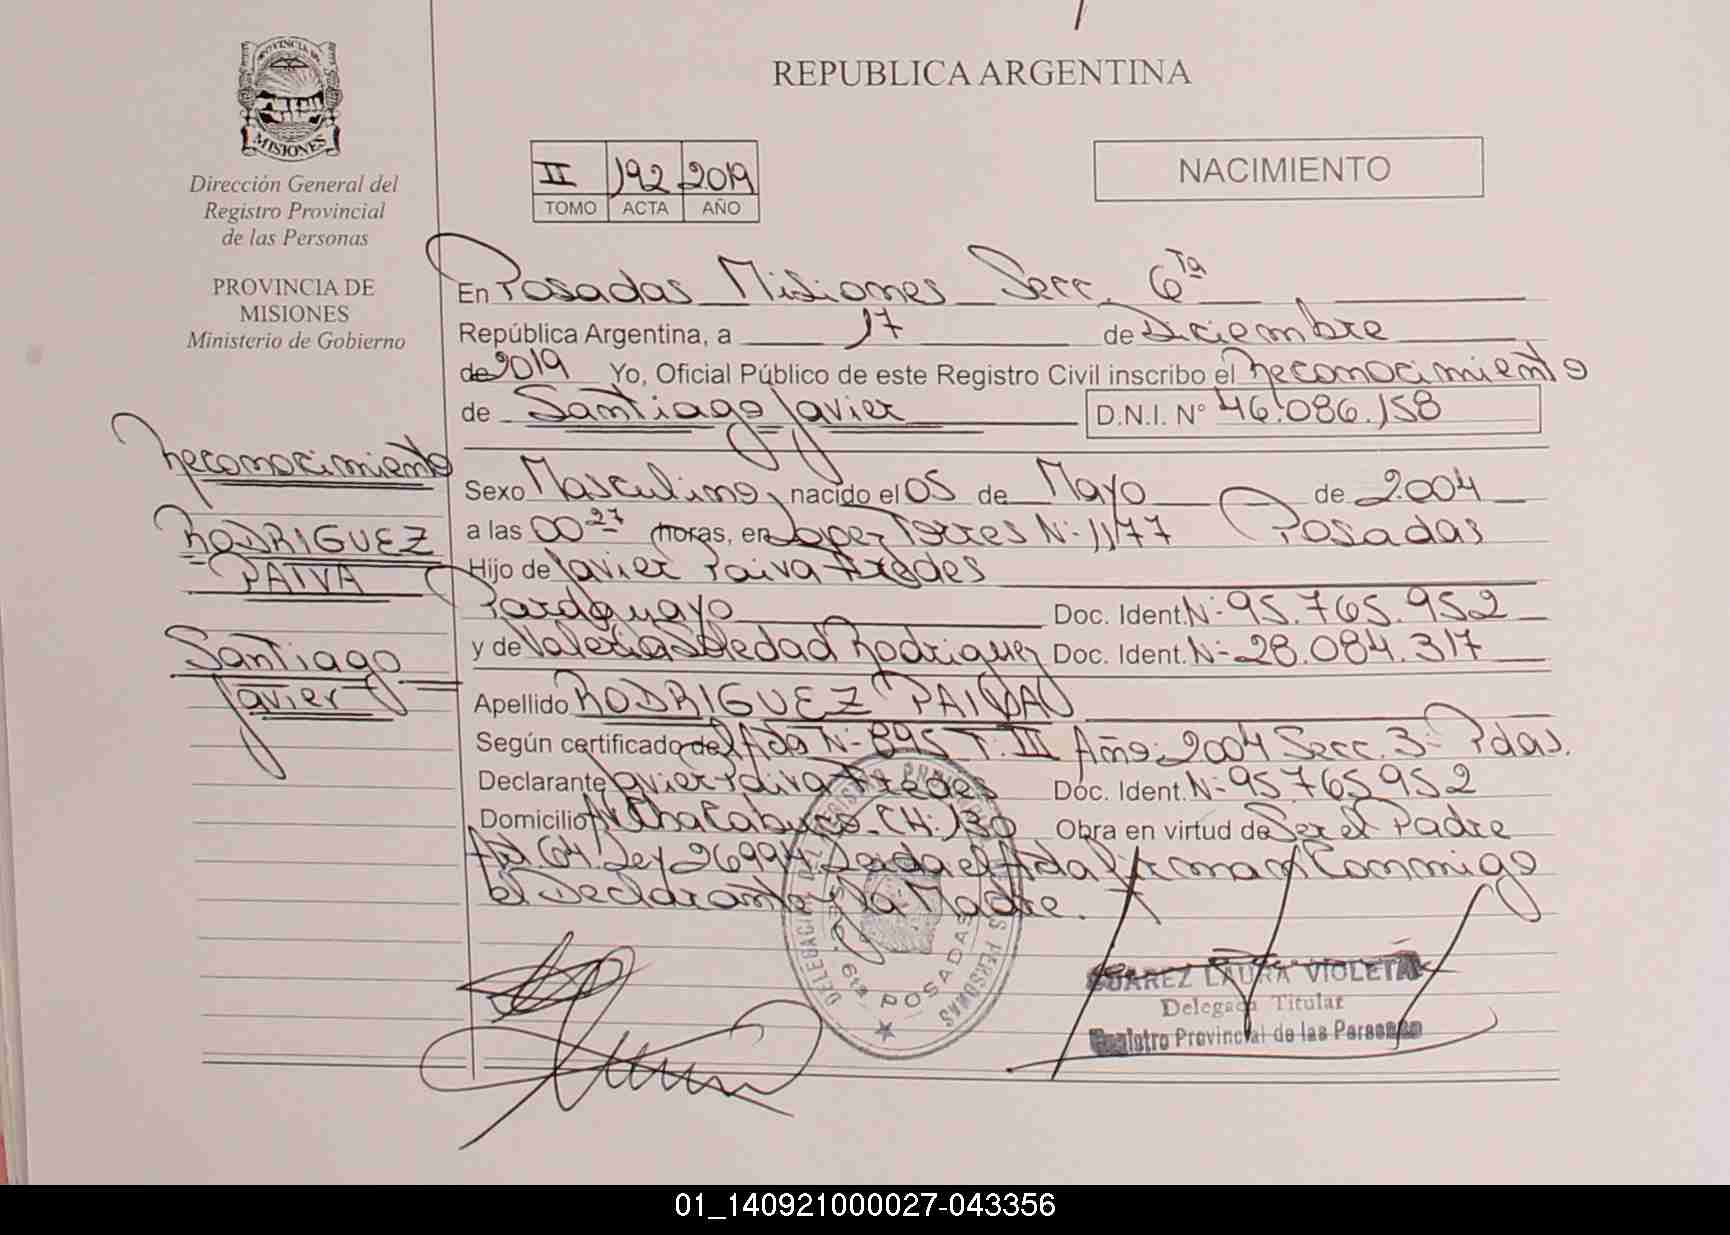 REPUBLICA ARGENTINA
PROVINCIA DE
MISIONES
Dirección General del
Registro Provincial
de las Personas
PROVINCIA DE
MISIONES
Ministerio de Gobierno
II 192 2019
TOMO ACTA AÑO
NACIMIENTO
Reconocimiento
RODRIGUEZ
PAIVA
Santiago
Javier
En Posadas Misiones Secc. 6ta
República Argentina, a 17 de Diciembre
de 2019 Yo, Oficial Público de este Registro Civil inscribo el Reconocimiento
de Santiago Javier D.N.I. N° 46.086.158
Sexo Masculino, nacido el 05 de Mayo de 2004
a las 00 27 horas, en Lopez Torres N- 1177 Posadas
Hijo de Javier Paiva Aredes
Paraguayo Doc. Ident. N- 95.765.952
y de Valeria Soledad Rodriguez Doc. Ident. N- 28.084.317
Apellido RODRIGUEZ PAIVA
Según certificado del Acta N- 895 T. III Año: 2004 Secc. 3- Pdas.
Declarante Javier Paiva Aredes Doc. Ident. N- 95765952
Domicilio Av Chacabuco - CH: 130 Obra en virtud de Ser el Padre
Art. 64. Ley 26994 Leida el Acta Firman Conmigo
el Declarante y la Madre.
DELEGACION DEL REGISTRO PROVINCIAL DE LAS PERSONAS
POSADAS
SUAREZ LAURA VIOLETA
Delegada Titular
Registro Provincial de las Personas
01_140921000027-043356